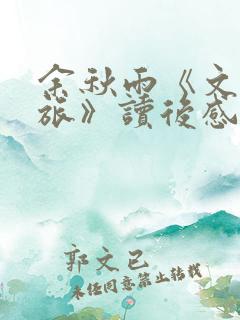 余秋雨《文
旅》讀後感
郭文已
未任同意禁止转载